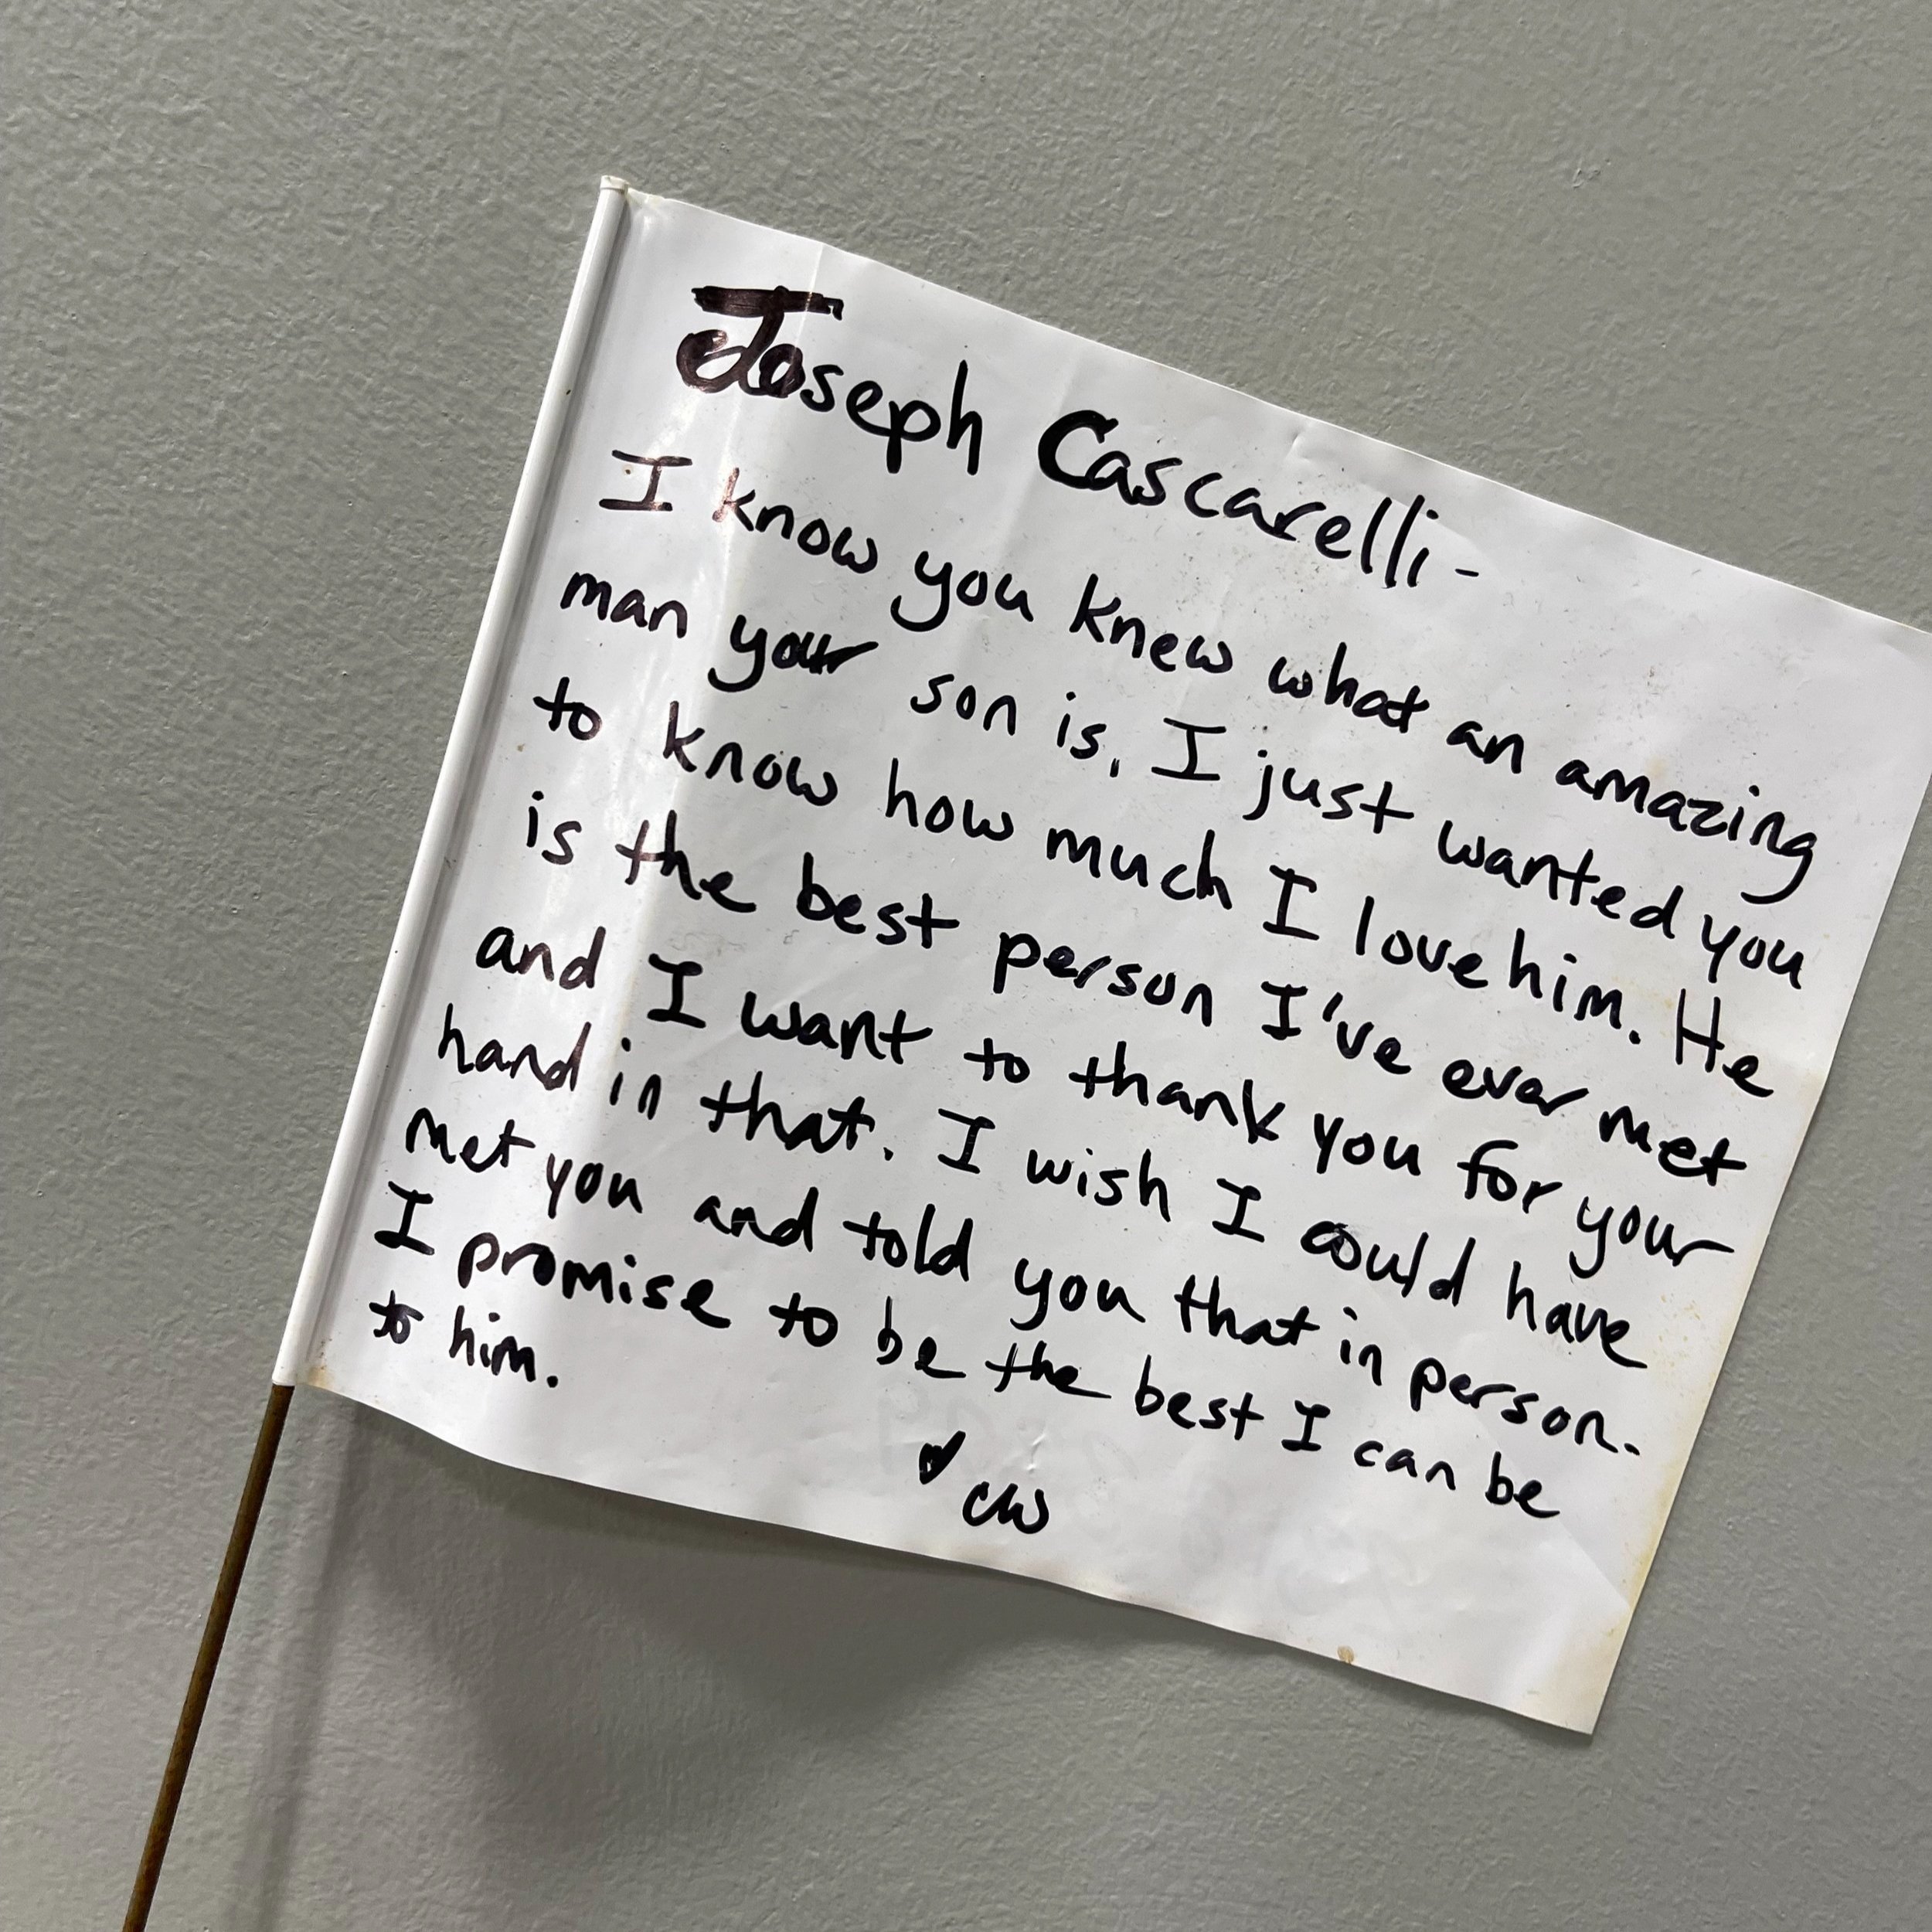 Joseph Cascarelli -
I know you knew what an amazing
man your son is, I just wanted you
to know how much I love him. He
is the best person I've ever met
and I want to thank you for your
hand in that. I wish I could have
met you and told you that in person.
I promise to be the best I can be
to him.
♥ CW